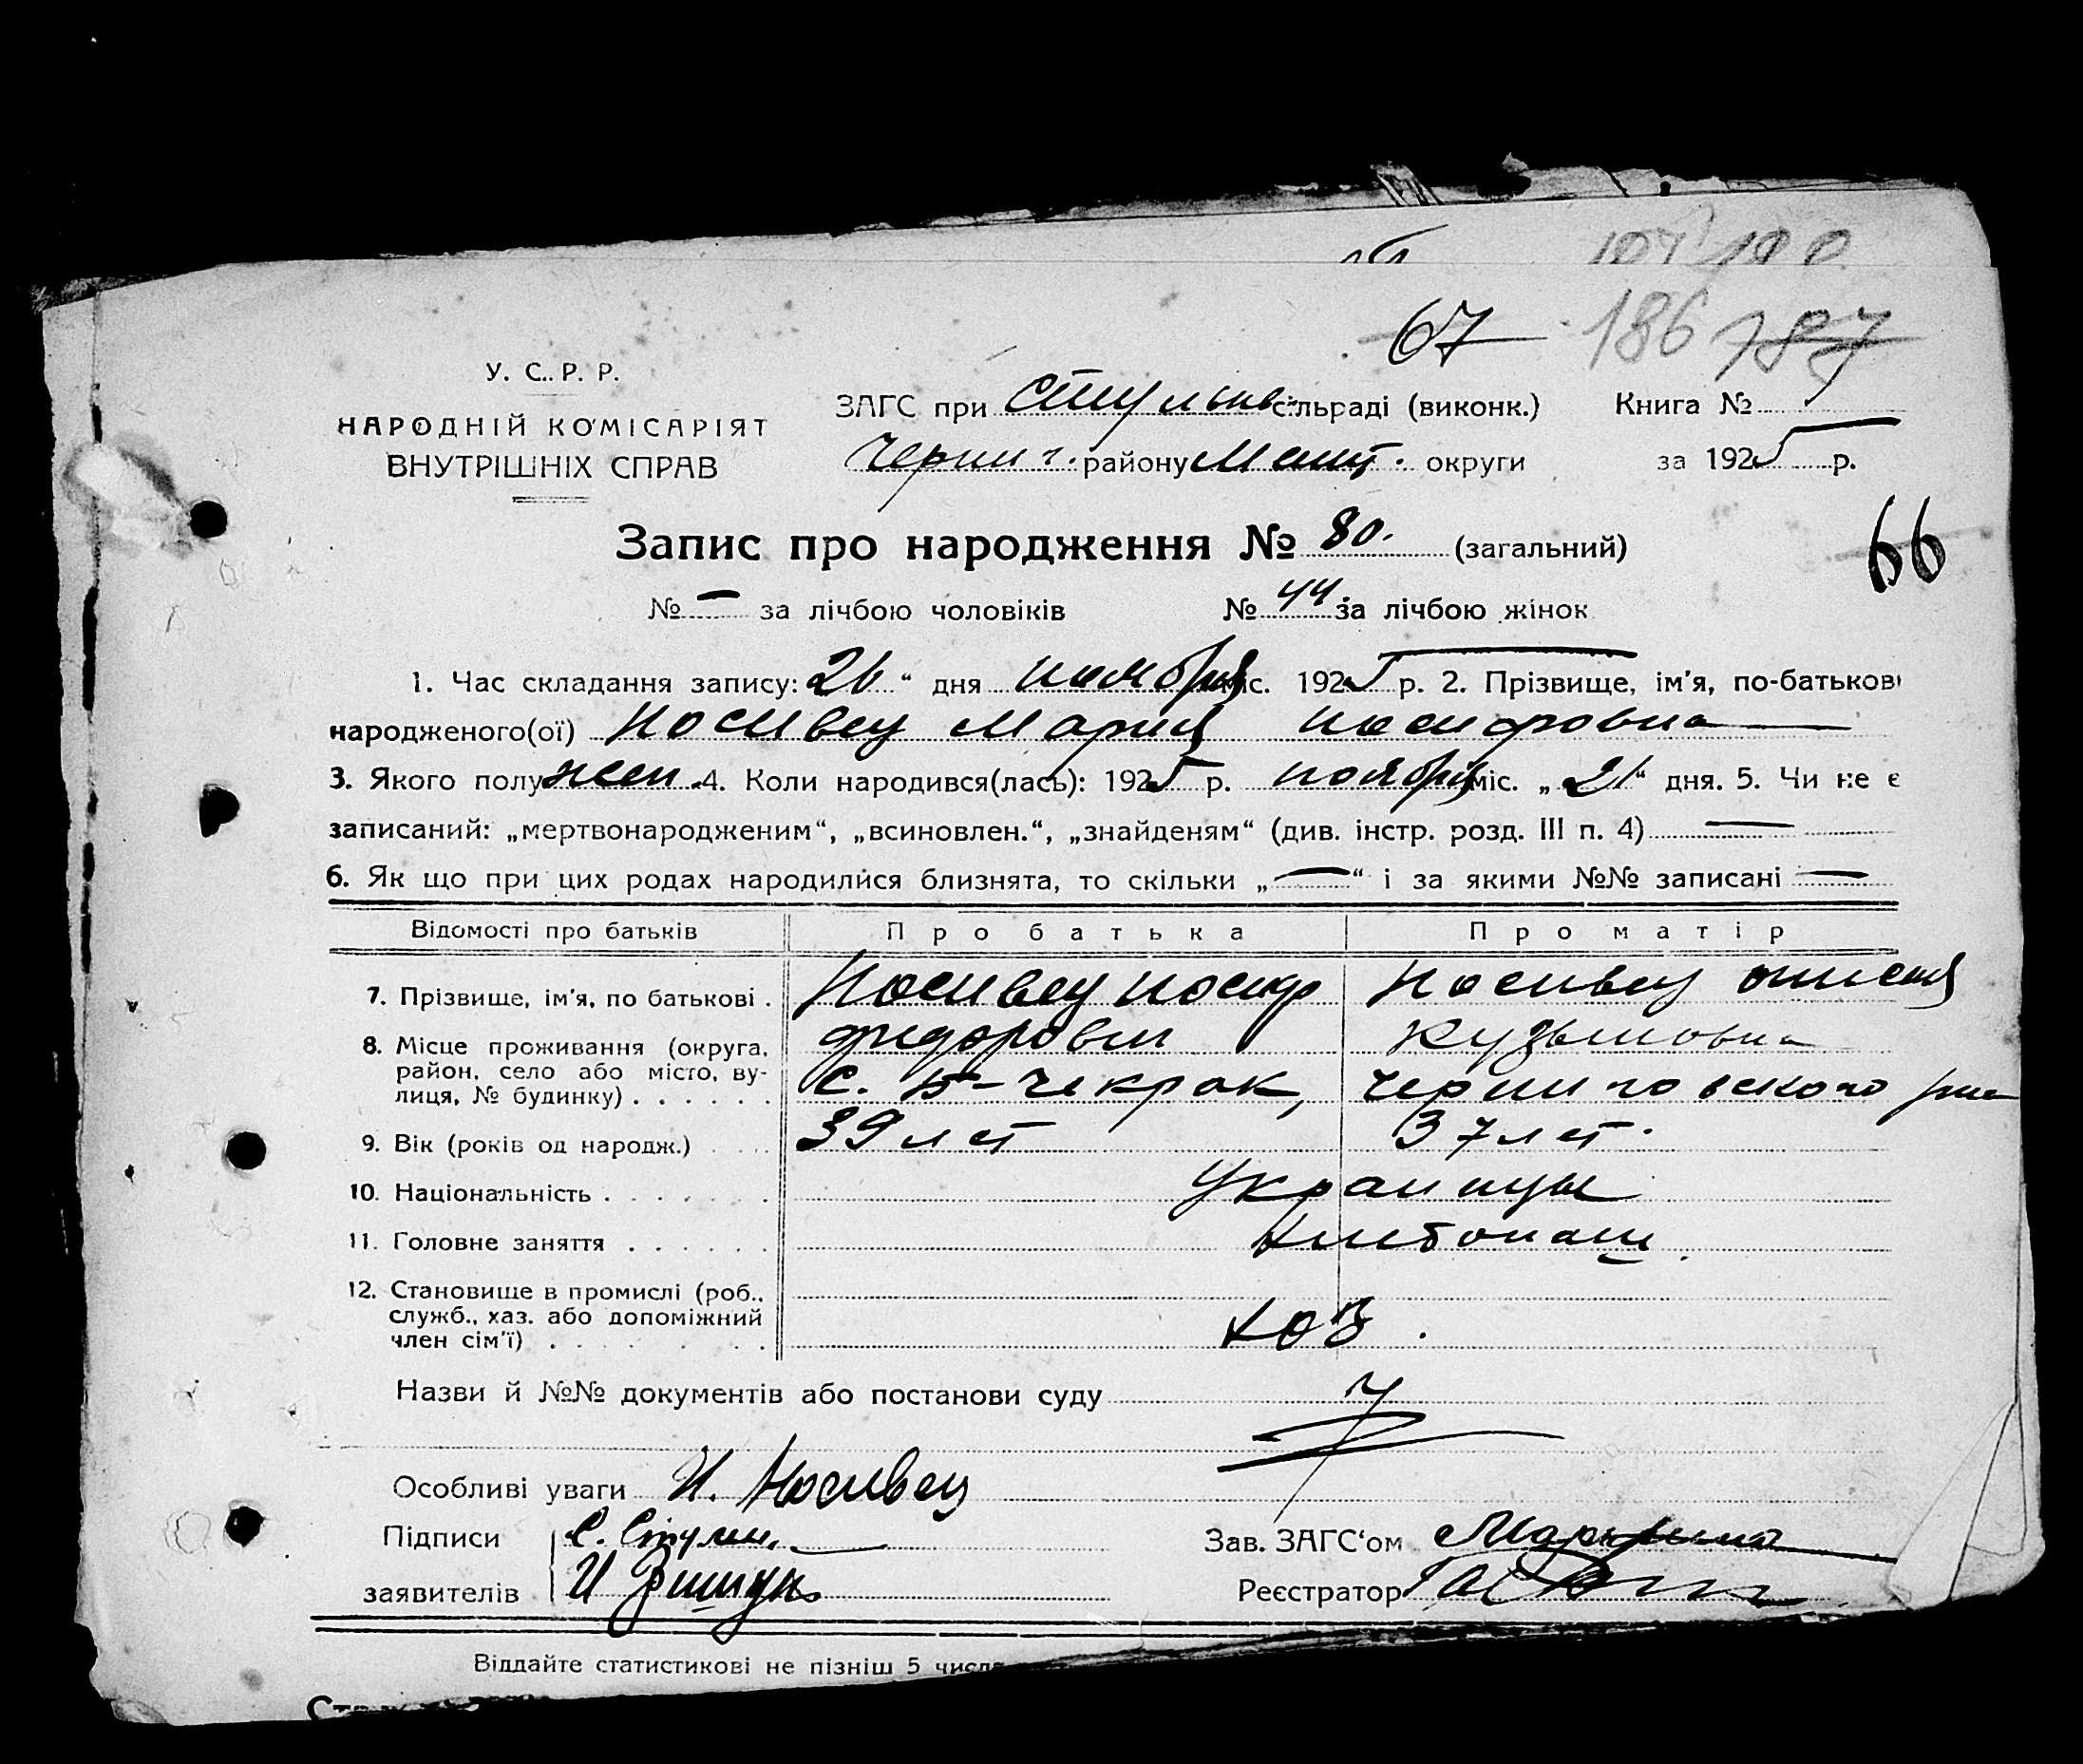 67 186 187
У. С. Р. Р.
НАРОДНІЙ КОМІСАРІЯТ
ВНУТРІШНІХ СПРАВ
ЗАГС при сільраді (виконк.) Книга №
Черниг. району Меліт. округи за 1925 р.
66
Запис про народження № 80. (загальний)
№ — за лічбою чоловіків № 44. за лічбою жінок
1. Час складання запису: 26 “ дня ноября міс. 1925 р. 2. Прізвище, ім'я, по-батькові
народженого(ої) Носивец Мария Иосифовна
3. Якого полу жен. 4. Коли народився(лась): 1925 р. ноября міс. „ 21 “ дня. 5. Чи не є
записаний: „мертвонародженим“, „всиновлен.“, „знайденям“ (див. інстр. розд. III п. 4) —
6. Як що при цих родах народилися близнята, то скільки „ — “ і за якими №№ записані —
Відомості про батьків Про батька Про матір
7. Прізвище, ім'я, по батькові . Носивец Иосиф Носивец
Фидорович Кузьмовна
8. Місце проживання (округа, район, село або місто, вулиця, № будинку) . . . . . . с. Б-Чекрак, Черниговского
9. Вік (років од народж.) 39 лет 37 лет.
10. Національність . . . . . . Украинцы
11. Головне заняття . . . . . . Хлебопаш.
12. Становище в промислі (роб.,
служб., хаз. або допоміжний
член сім'ї) . . . . . . хоз.
Назви й №№ документів або постанови суду
Особливі уваги И. Носивец
Підписи С. Зав. ЗАГС‘ом
заявителів И Реєстратор
Віддайте статистикові не пізніш 5 числа